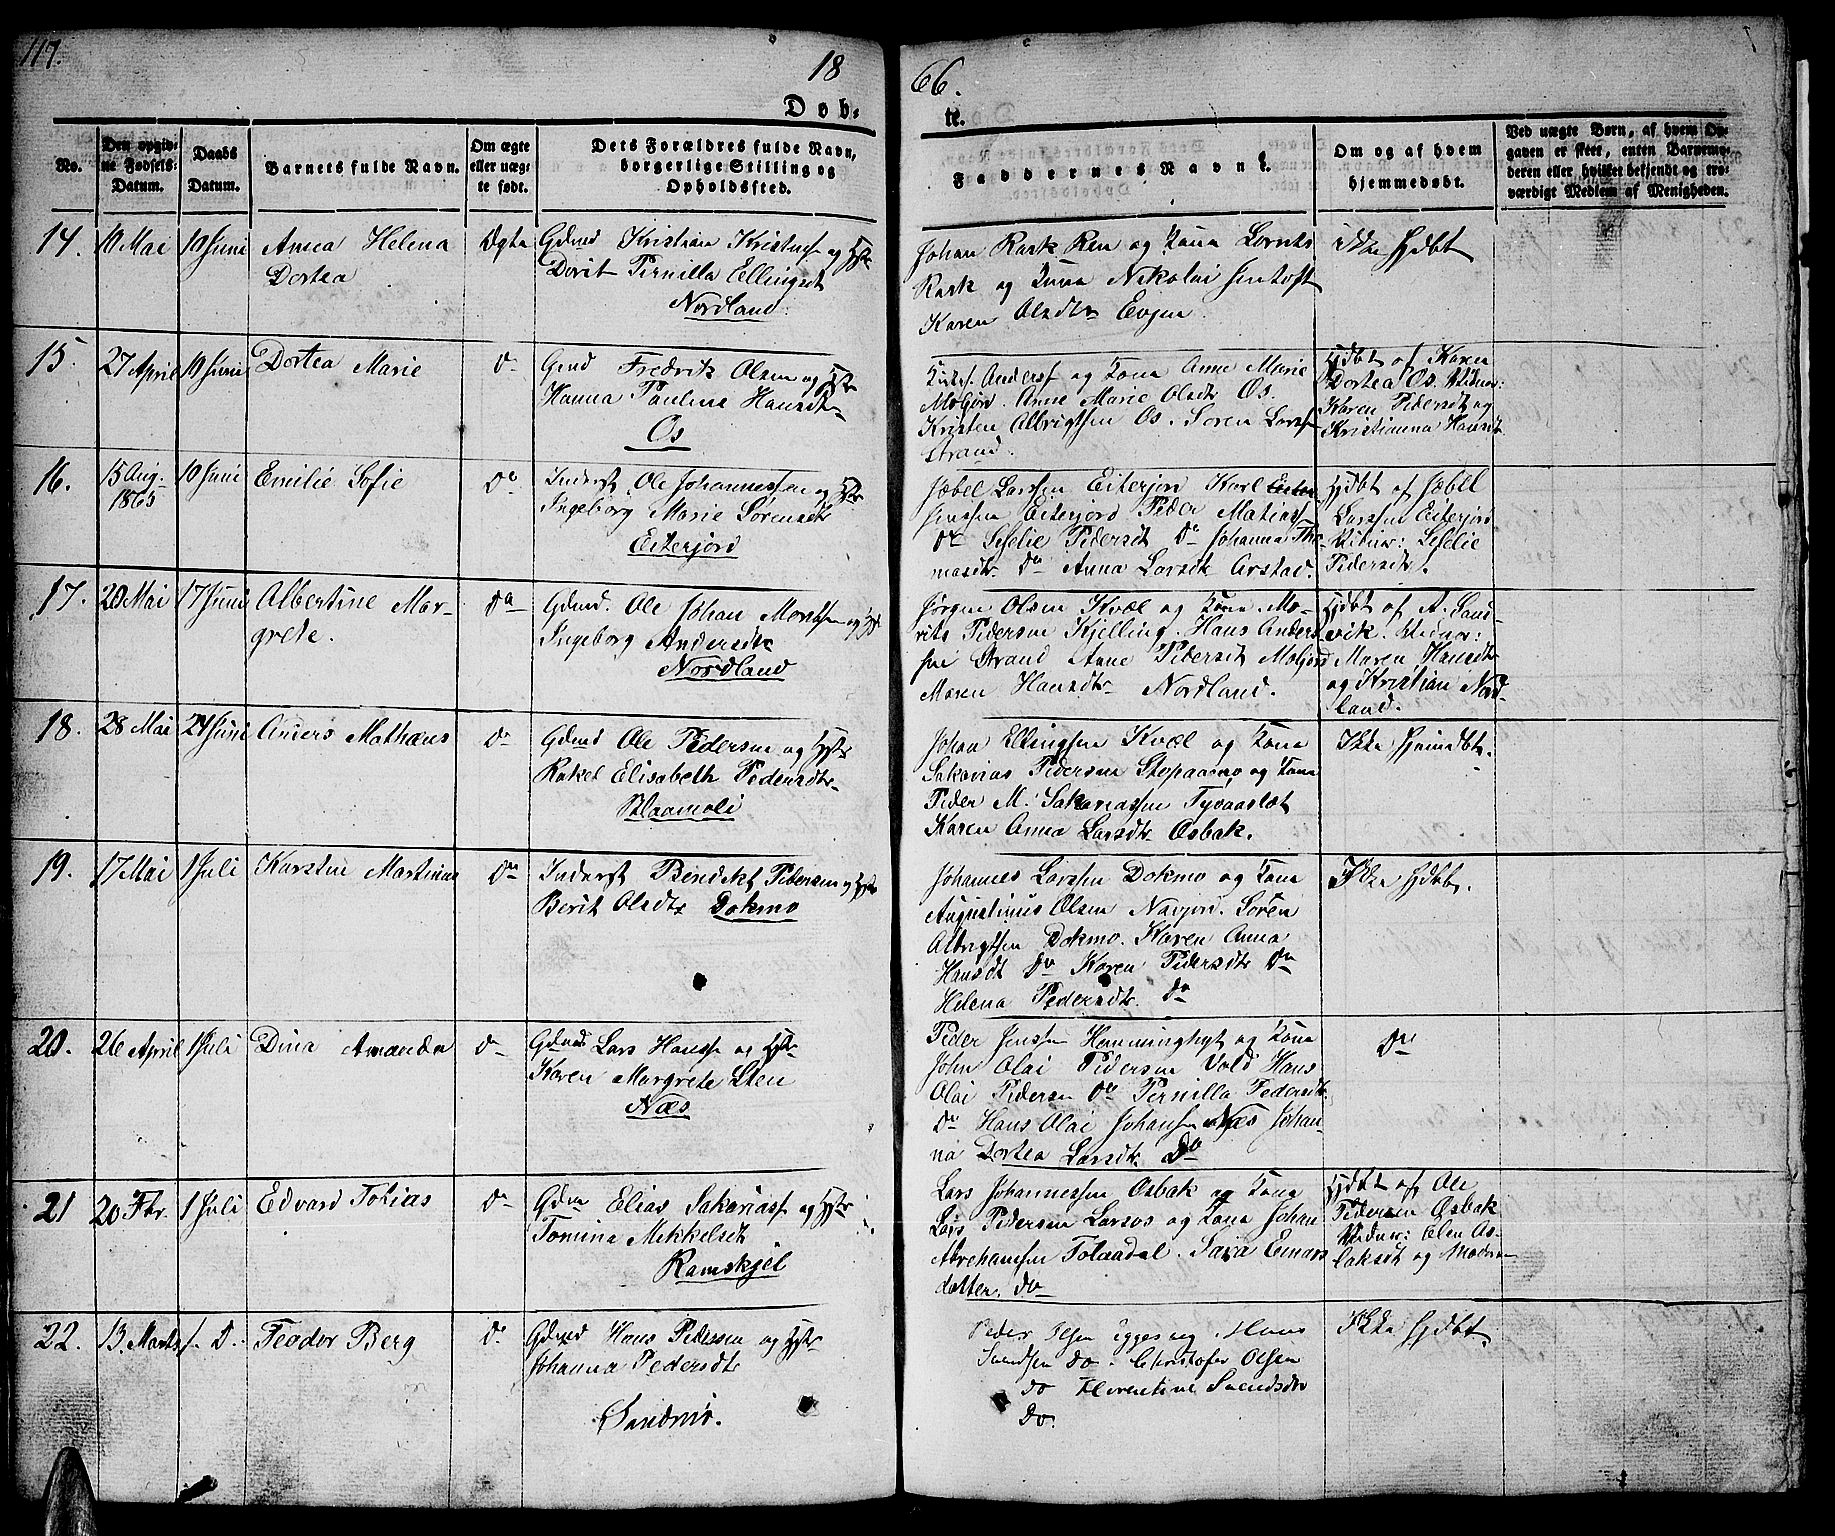 117.
18
66.
Døb-
te.
No.
Den opgiv-
ne Fødsels-
Datum.
Daabs
Datum.
Barnets fulde Navn.
Om ægte
eller uæg-
te født.
Dets Forældres fulde Navn,
borgerlige Stilling og
Opholdsfted.
Faddernes Navne.
Om og af hvem
hjemmedøbt.
Ved uægte Børn, af hvem Op-
gaven er sket, enten Barnemo-
deren eller hvilket bekjendt og tro-
værdigt Medlem af Menigheden.
14.
10 Mai
10 Juni
Anna Helena
Dortea
Ægte
Gdmd Kristian Kristians og Hstr
Dorit Pernilla Ellingsdt
Nordland.
Johan Rask Ren og Kona Lornts
Rask og Kona Nikolai Jentoft
Karen Olsdtr Evjen
ikke Hjdbt
15.
27 April
10 Juni
Dortea Marie
Do
Gmd Fredrik Olsen og Hstr
Hanna Paulina Hansdtr
Os
Anders og Kona Anne Marie
Moljord. Anne Marie Olsdtr Os.
Kristen Albrigtsen Os. Soren Larss
Strand.
Hjdbt af Karen
Dortea Os. Vidner:
Karen Pedersdt og
Kristianna Hansdt
16.
15 Aug.
1865
10 Juni
Emilie Sofie
Do
Inderst Ole Johannessen og Hstr
Ingeborg Marie Sørensdt
Eiterjord
Jæbel Larssen Eiterjord Karl
Jenssen Eiterjord Peder Matiass
Do Sefelie Pedersdt Do Johanna Tho-
masdtr. Do Anna Larsdt Arstad.
Hjdbt af Jæbel
Larssen Eiterjord
Vidner: Sefelie
Pedersdtr.
17.
20 Mai
17 Juni
Albertine Mar-
grete.
Do
Gdmd. Ole Johan Moritssen og Hstr
Ingeborg Andersdtr
Nordland
Jørgen Olsen Kvæl og Kona Mo-
rits Pedersen Kjelling. Hans Anders-
sen Strand Anne Pedersdt Moljord
Maren Hansdtr Nordland.
Hjdbt af A. Sand-
vik. Vidner:
Maren Hansdtr
og Kristian Nord-
land.
18.
28 Mai
24 Juni
Anders Mathæus
Do
Gdmd Ole Pedersen og Hstr
Rakel Elisabeth Pedersdtr
Staamoli
Johan Ellingsen Kvæl og Kona
Sakarias Pedersen Stopaamo og Kona
Peder M. Sakariassen Tyvaaslæt
Karen Anna Larsdtr Osbak.
Ikke Hjemdbt.
19.
17 Mai
1 Juli
Karsten Martinus
Do
Inderst Bendikt Pedersen og Hstr
Berit Olsdtr Dokmo
Johannes Larssen Dokmo og Kona
Augustinus Olsen Navjord. Søren
Albrigtsen Dokmo. Karen Anna
Hansdt Do Karen Pedersdtr Do
Helena Pedersdtr. Do
Ikke Hjdbt.
20.
26 April
1 Juli
Dina Amanda
Do
Gdmd Lars Hanss og Hstr
Karen Margrete Sten
Næs
Peder Jenssen Hemminghyt og Kona
John Olai Pedersen Vold Hans
Olai Pedersen Do Pernilla Pedersdtr
Do Hans Olai Johansen Næs Johan-
na Dortea Larsdtr. Do
Do
21
20 Fbr.
1 Juli
Edvard Tobias
Do
Gdm Elias Sakariass og Hstr
Tomina Mikkelsdt
Ramskjel
Lars Johannessen Osbak og Kona
Lars Pedersen Larsos og Kona Johan
Abrehamsen Tolaadal. Sara Einars
datter. do
Hjdbt af Ole
Pedersen Osbak
Vidner: Olen As-
laksdt og Moderen
22.
13. Marts
s. D.
Teodor Berg
Do
Gdmd Hans Pedersen og Hstr
Johanna Pedersdtr
Sandmo.
Peder Olsen Eggesvig. Hans
Svendsen do. Christofer Olsen
do Florentine Svendsdtr
Do.
Ikke Hjdbt.